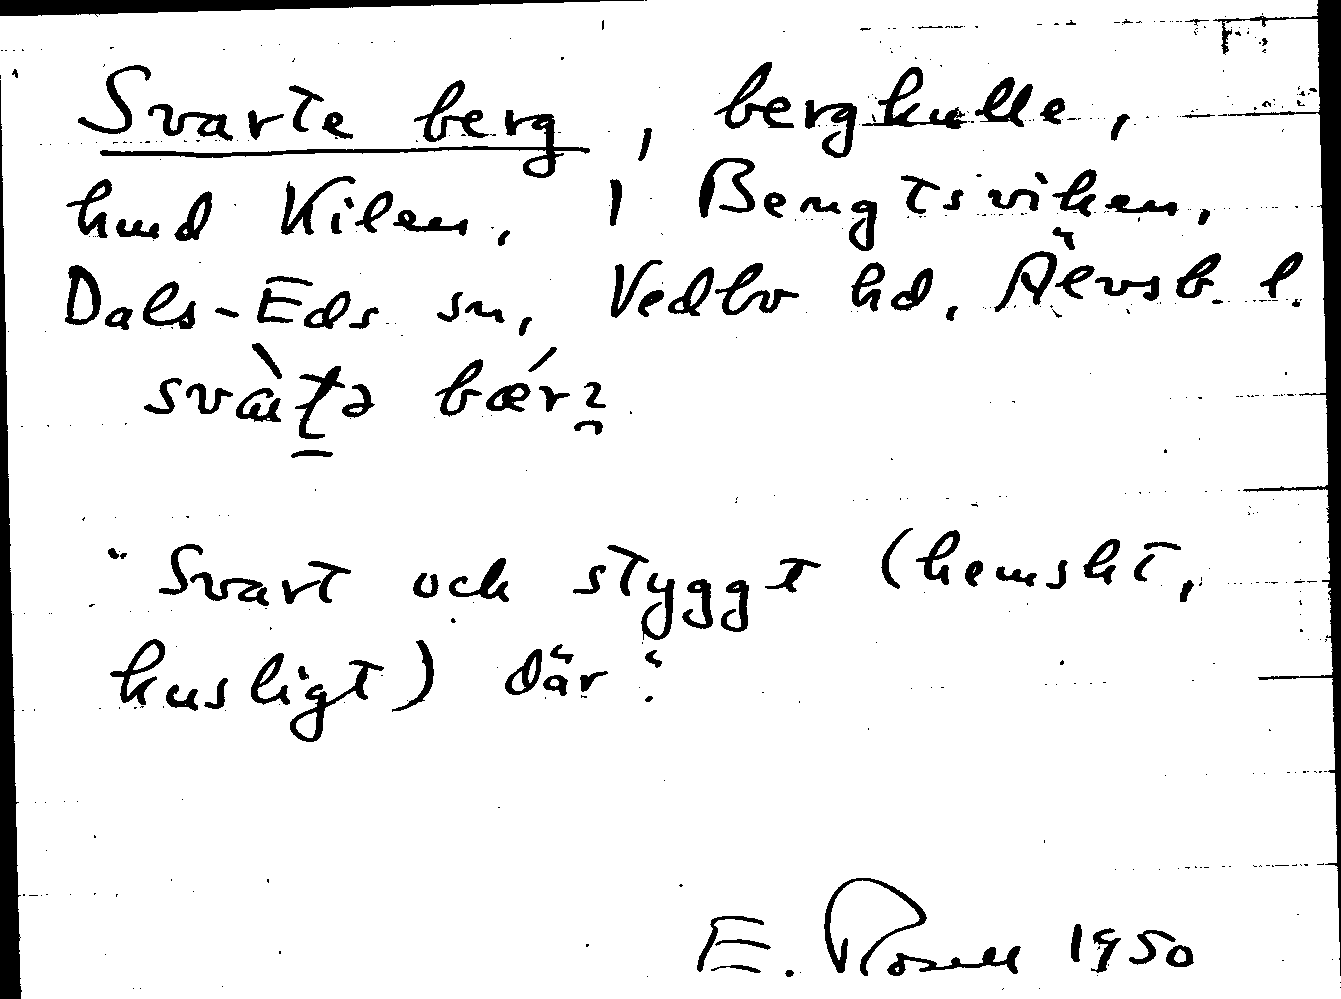 Svarte berg, bergkulle,
hmd Kilen, i Bengtsviken,
Dals-Eds sn, Vedbo hd, Älvsb. l.
"Svart och styggt (hemskt,
kusligt) där".
E. Rosell 1950